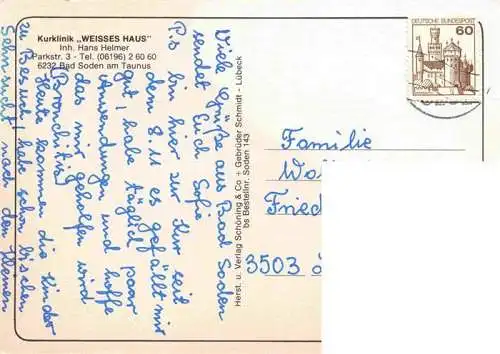 Kurklinik „WEISSES HAUS"
Inh. Hans Helmer
Parkstr. 3 - Tel. (06196) 2 60 60
6232 Bad Soden am Taunus
DEUTSCHE BUNDESPOST
60
Viele Grüße aus Bad Soden
sendet Euch Sofie
Ps bin hier zur Kur seit
dem 8.11 es gefällt mir
gut, habe täglich paar
Anwendungen und hoffe
das mir geholfen wird
Bronchitis!
Heute kommen die Kinder
zu Besuch, habe schon bischen
Sehnsucht nach den Kleinen
Herst. u. Verlag Schöning & Co + Gebrüder Schmidt - Lübeck
bs Bestellnr. Soden 143
Familie
Wo
Fried
8503